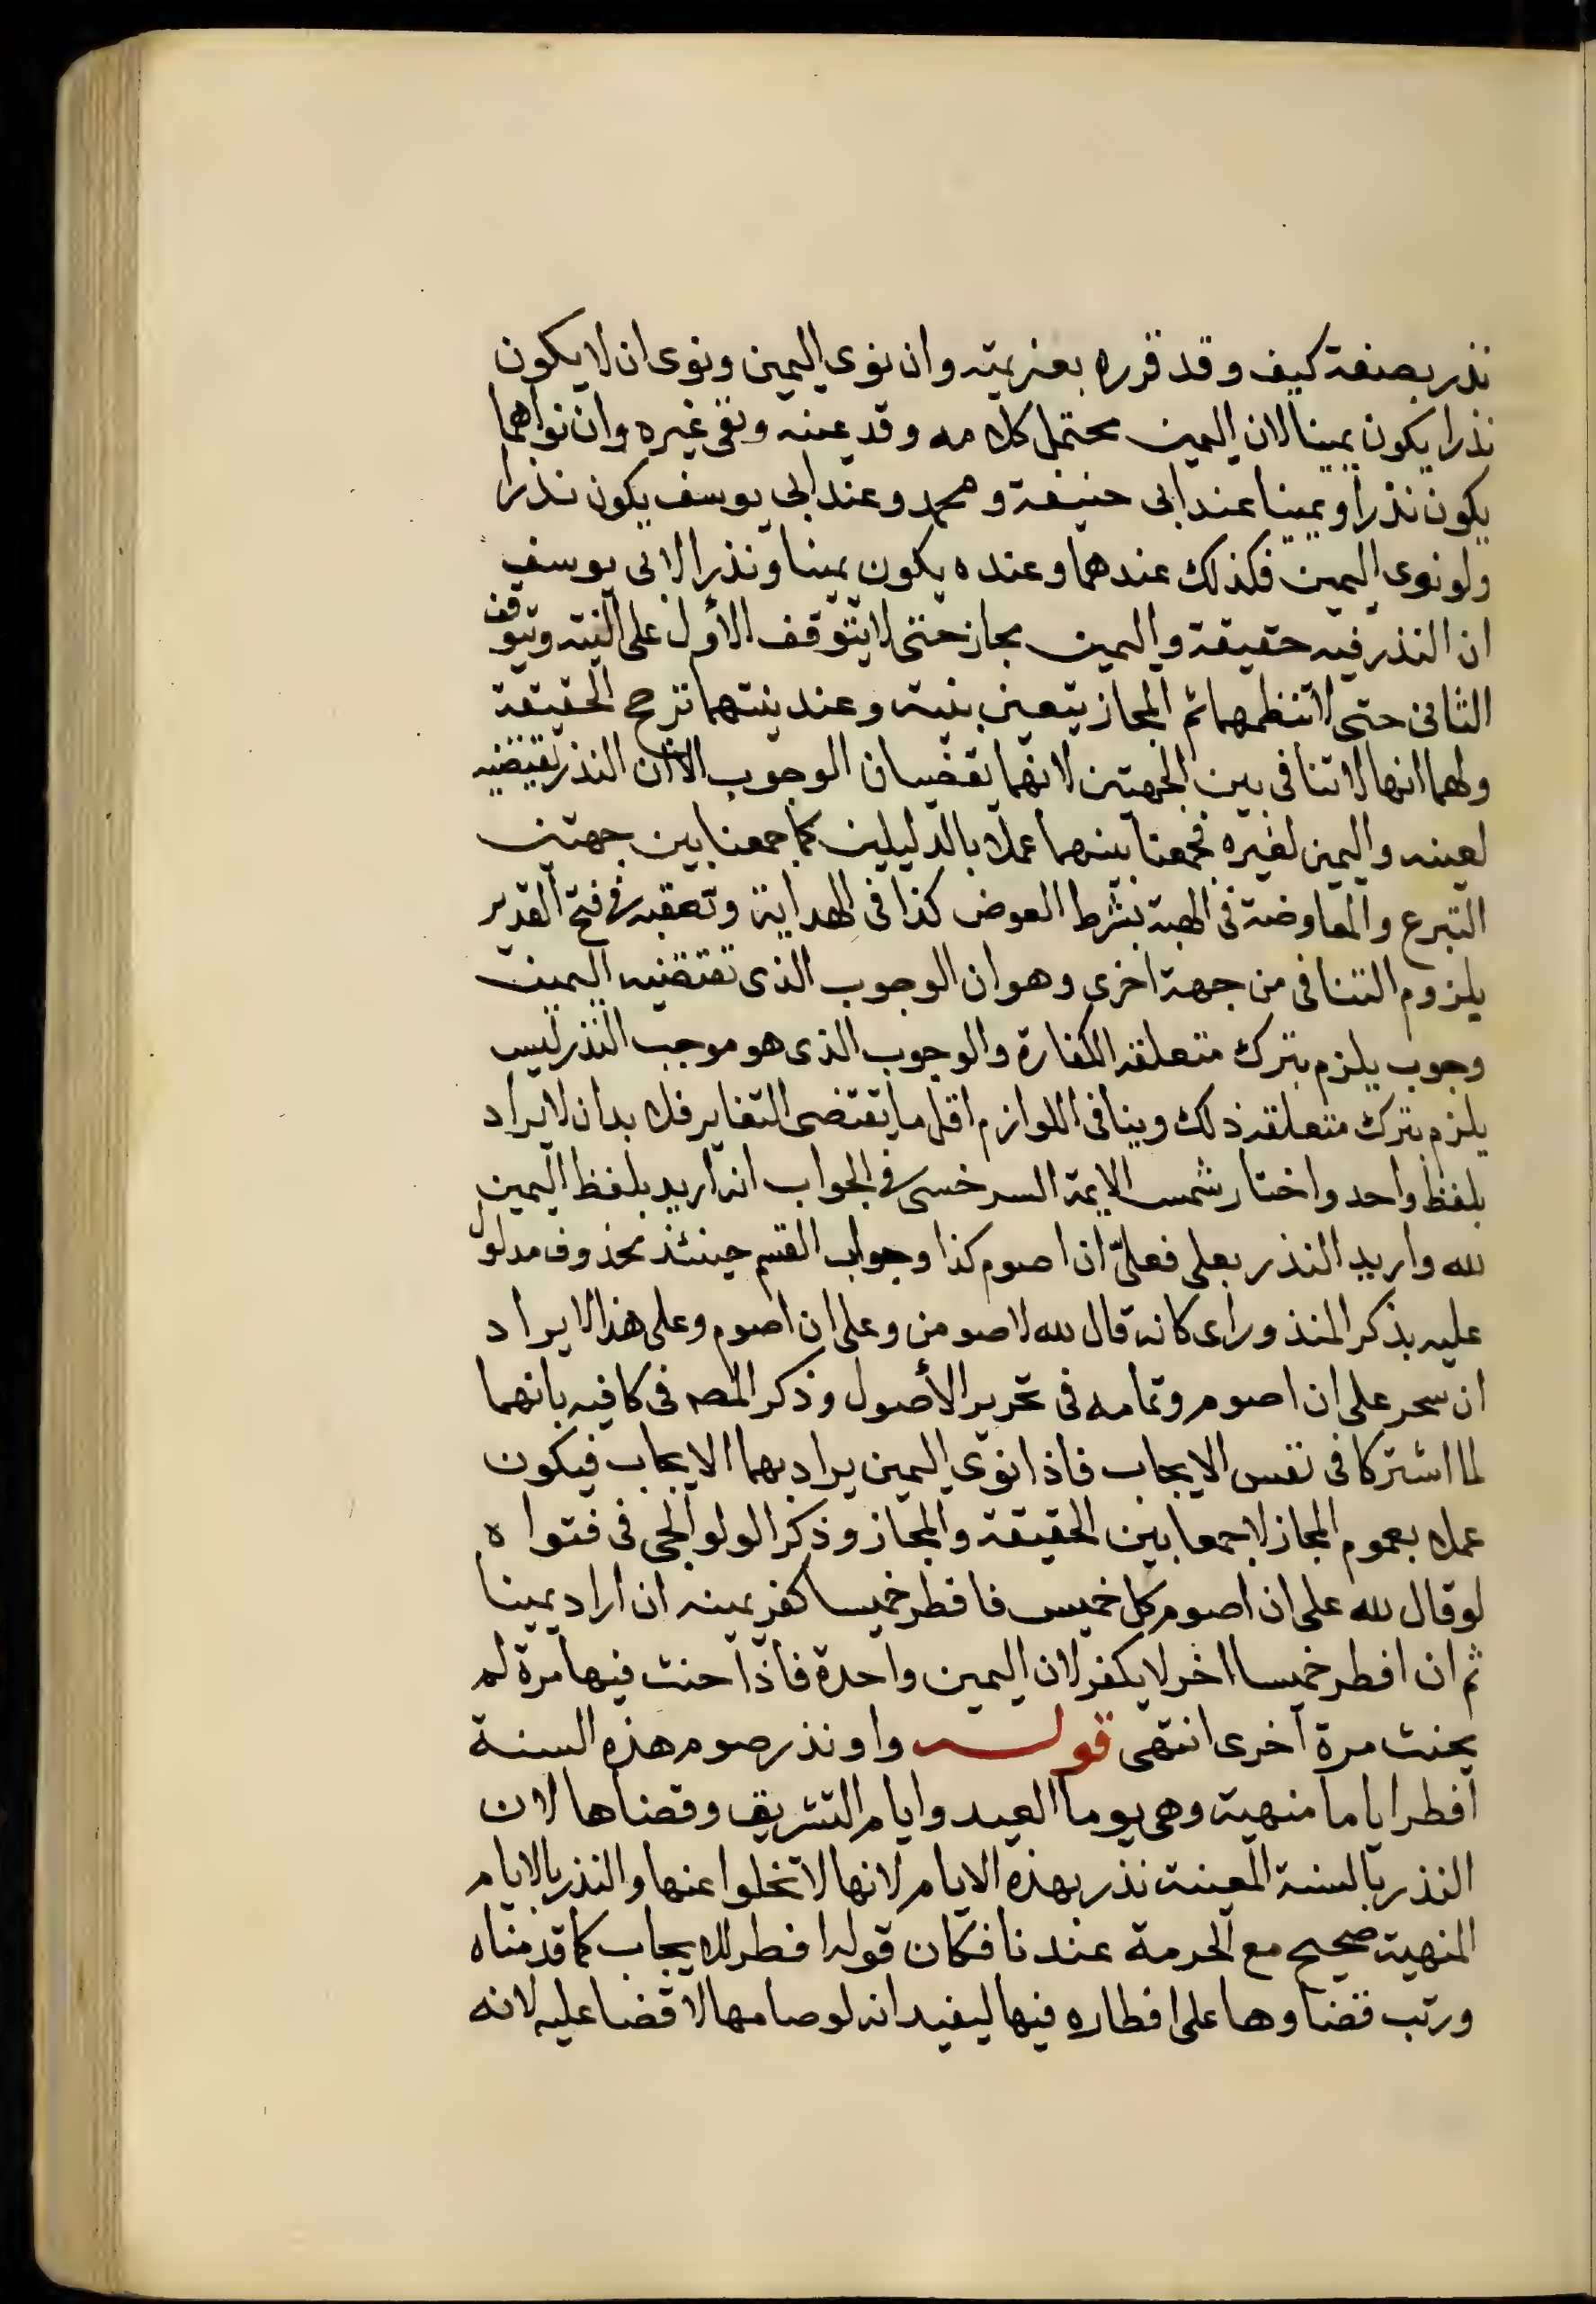 نذر بصنفة كيف وقد قرره بعزيمته وان نوى اليمين ونوى ان لا يكون
نذرا يكون يمينا لان اليمين محتمل كلامه وقد عينه ونفى غيره وان نواهما
يكون نذرا ويمينا عند ابى حنيفة ومحمد وعند ابى يوسف يكون نذرا
ولو نوى اليمين فكذلك عندهما وعنده يكون يمينا ونذرا لابى يوسف
ان النذر فيه حقيقة واليمين مجاز حتى لا يتوقف الأول على النية ويتوقف
الثانى حتى لا تنظمهما ثم المجاز يتعين بنية وعند نيتهما ترجح الحقيقة
ولهما انها لا تنافى بين الجهتين لانهما تقضيان الوجوب الا ان النذر يقتضيه
لعينه واليمين لغيره فجمعنا بينهما عملا بالدليلين كما جمعنا بين جهتين
التبرع والمعاوضة فى الهبة بشرط العوض كذا فى الهداية وتعقبه فى فتح القدير
يلزوم التنافى من جهة اخرى وهو ان الوجوب الذى تقتضيه اليمين
وجوب يلزم بترك متعلقه الكفارة والوجوب الذى هو موجب النذر ليس
يلزم بترك متعلقه ذلك وينافى اللوازم اقل ما يقتضى التغاير فلا بد ان لا يراد
بلفظ واحد واختار شمس الايمة السرخسى فى الجواب انه اريد بلفظ اليمين
لله واريد النذر بعلى فعلىّ ان اصوم كذا وجواب القسم حينئذ محذوف مدلول
عليه بذكر المنذور اى كانه قال لله لاصومن وعلى ان اصوم وعلى هذا لا يراد
ان سحر على ان اصوم وتمامه فى تحرير الأصول وذكر المصه فى كافيه بانهما
لما اشتركا فى نفس الايجاب فاذا نوى اليمين يراد بهما الايجاب فيكون
عملا بعموم المجاز لا جمعا بين الحقيقة والمجاز وذكر الولوالجى فى فتواه
لو قال لله على ان اصوم كل خميس فافطر خميسا كفر يمينه ان اراد يمينا
ثم ان افطر خميسا اخر لا يكفر لان اليمين واحدة فاذا حنث فيها مرة لم
يحنث مرة اخرى انتهى قوله واو نذر صوم هذه السنة
افطر اياما منهية وهى يوما العيد وايام التشريق وقضاها لان
النذر بالسنة المعينة نذر بهذه الايام لانها لا تخلوا عنها والنذر بالايام
المنهية صحيح مع الحرمة عندنا فكان قوله افطر للايجاب كما قدمناه
ورتب قضاوها على افطاره فيها ليفيد انه لو صامها لا قضا عليه لانه